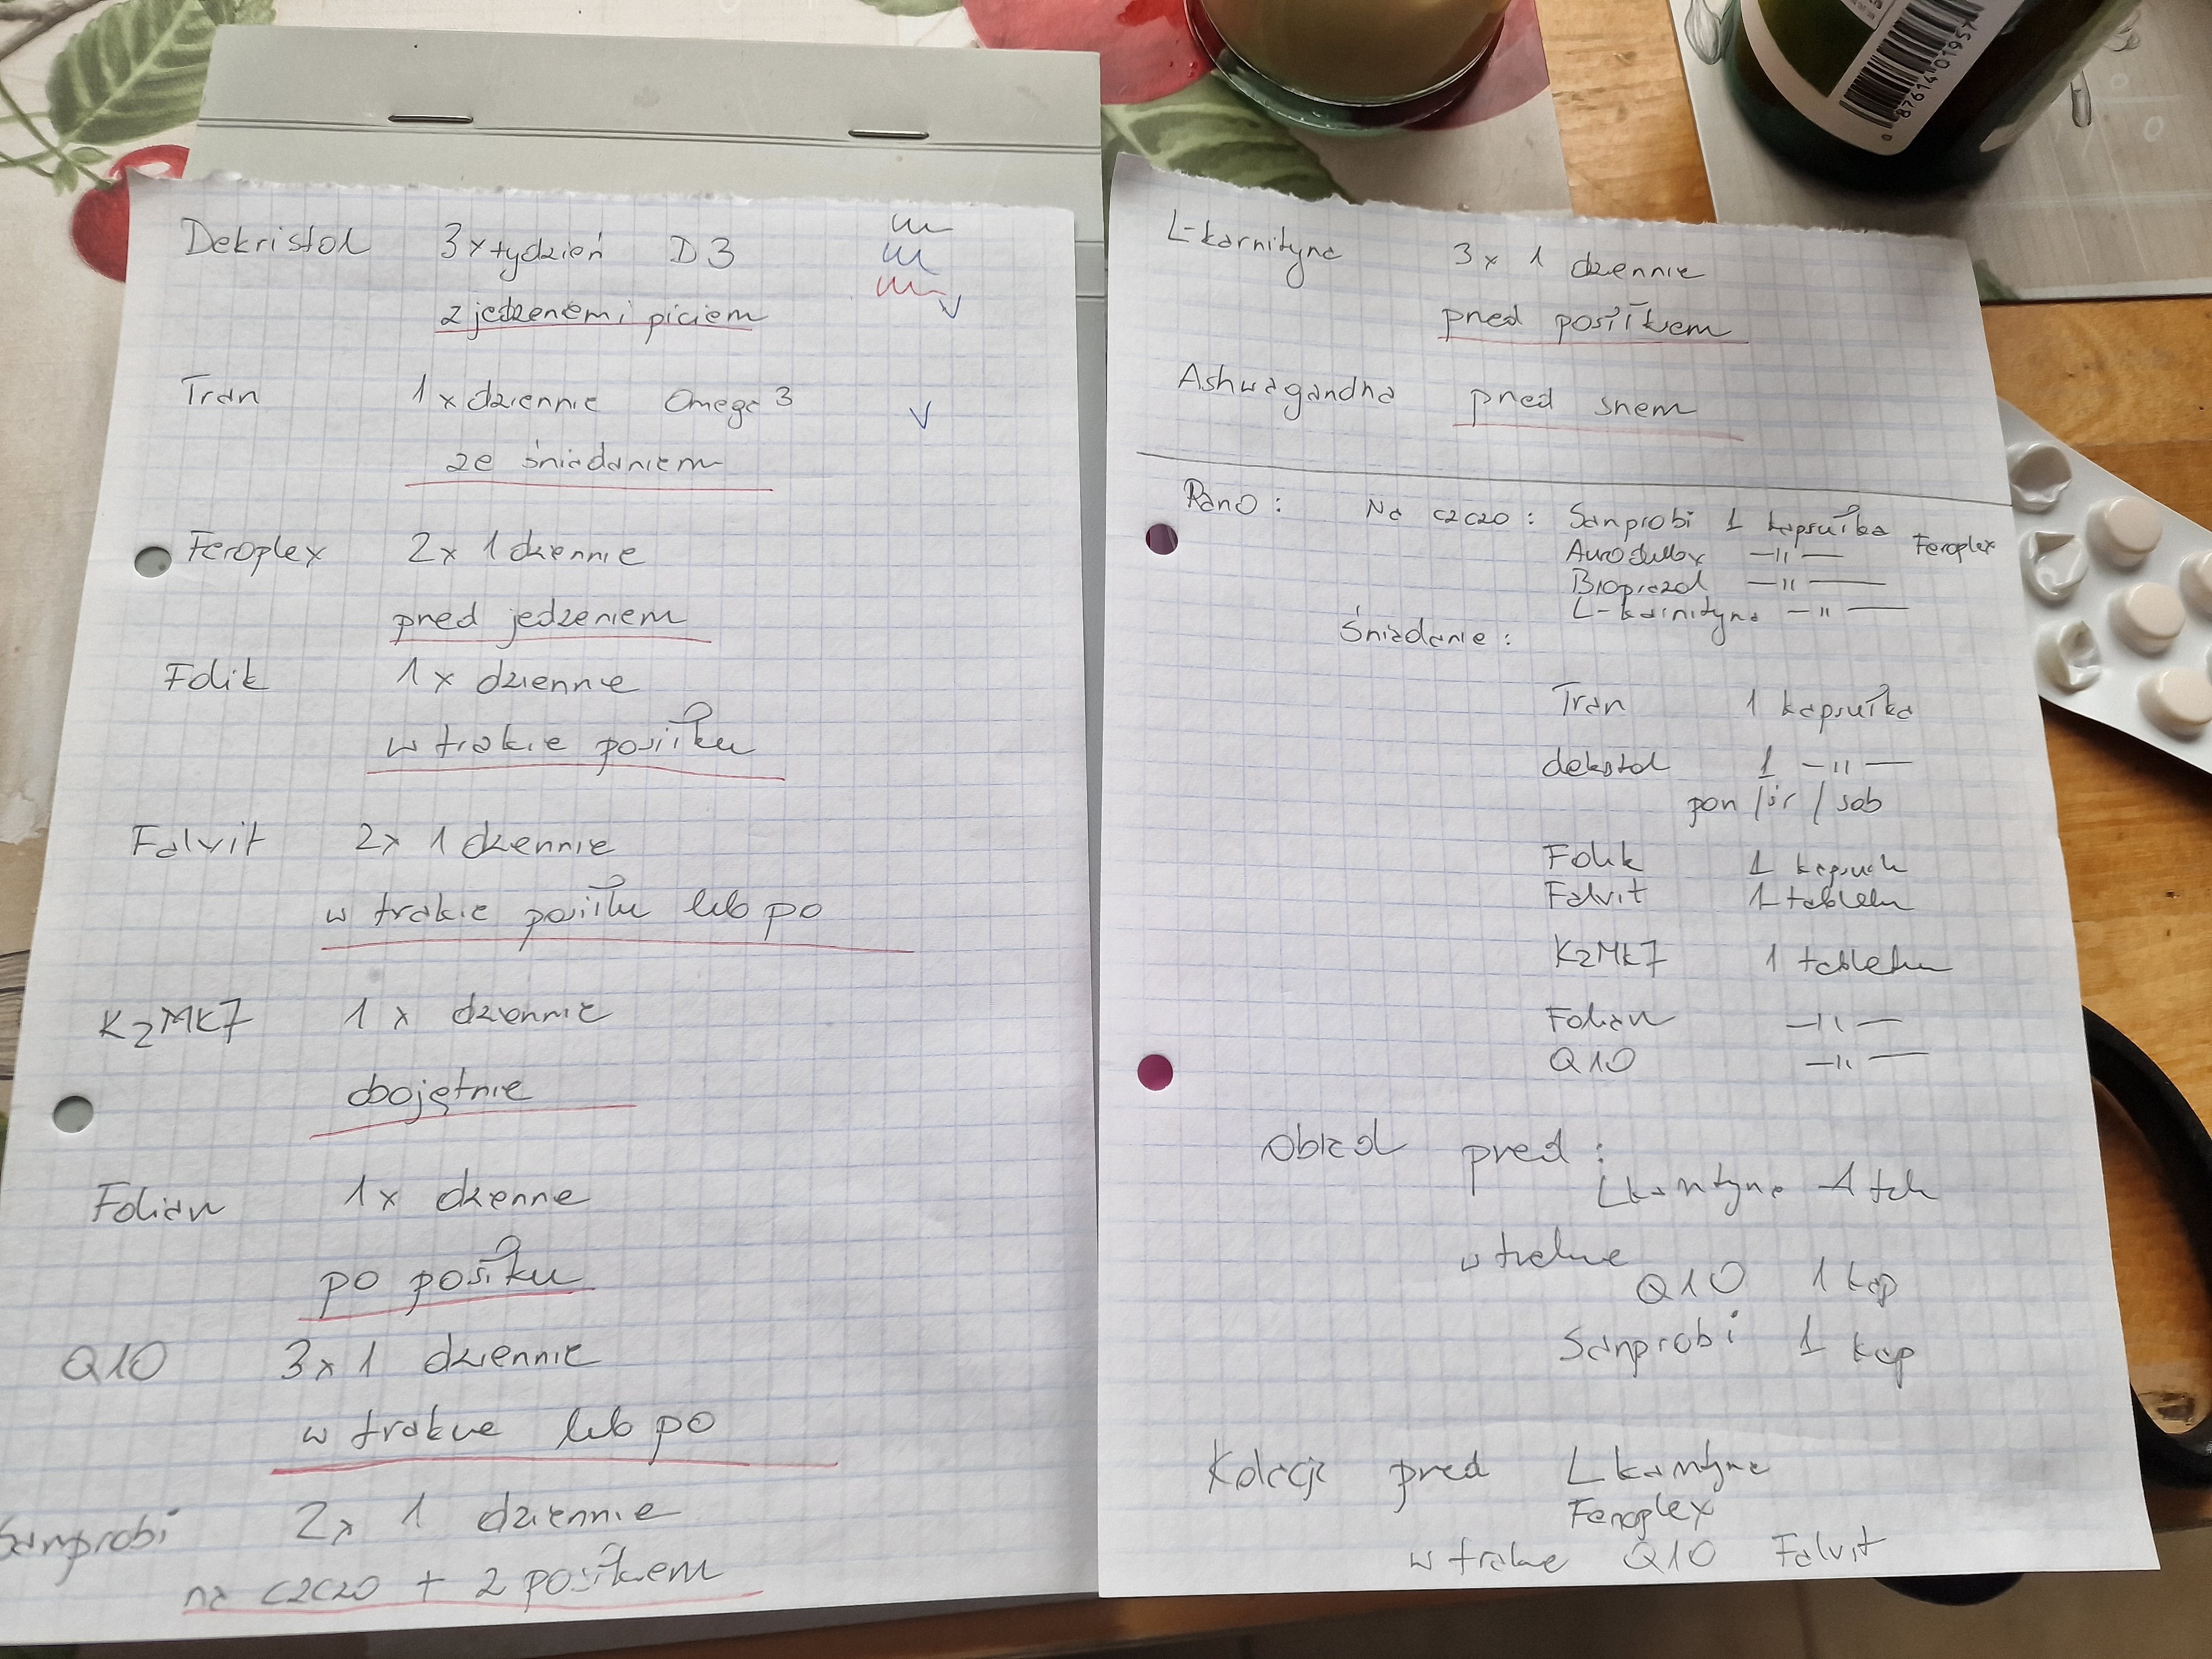 Dekristol 3x tydzień D3
z jedzeniem i piciem
Tran 1x dziennie Omega 3
ze śniadaniem
Feroplex 2x 1 dziennie
przed jedzeniem
Folik 1x dziennie
w trakcie posiłku
Falvit 2x 1 dziennie
w trakcie posiłku lub po
K2Mk7 1x dziennie
obojętnie
Folian 1x dzienne
po posiłku
Q10 3x1 dziennie
w trakcie lub po
Sanprobi 2x 1 dziennie
na czczo + z posiłkiem
L-karnityna 3x 1 dziennie
przed posiłkiem
Ashwagandha przed snem
Rano: Na czczo: Sanprobi 1 kapsułka Feroplex
—"—
Bioprazol —"—
L-karnityna —"—
Śniadanie:
Tran 1 kapsułka
dekstol 1 —"—
pon / śr / sob
Folik 1 kapsułk
Falvit 1 tabletka
K2Mk7 1 tabletka
Folian —"—
Q10 —"—
Obiad przed:
Lkarnityna 1 tab
w trakcie
Q10 1 kap
Sanprobi 1 kap
Kolacja przed Lkarnityna
Feroplex
w trakcie Q10 Falvit
0 87614 01957